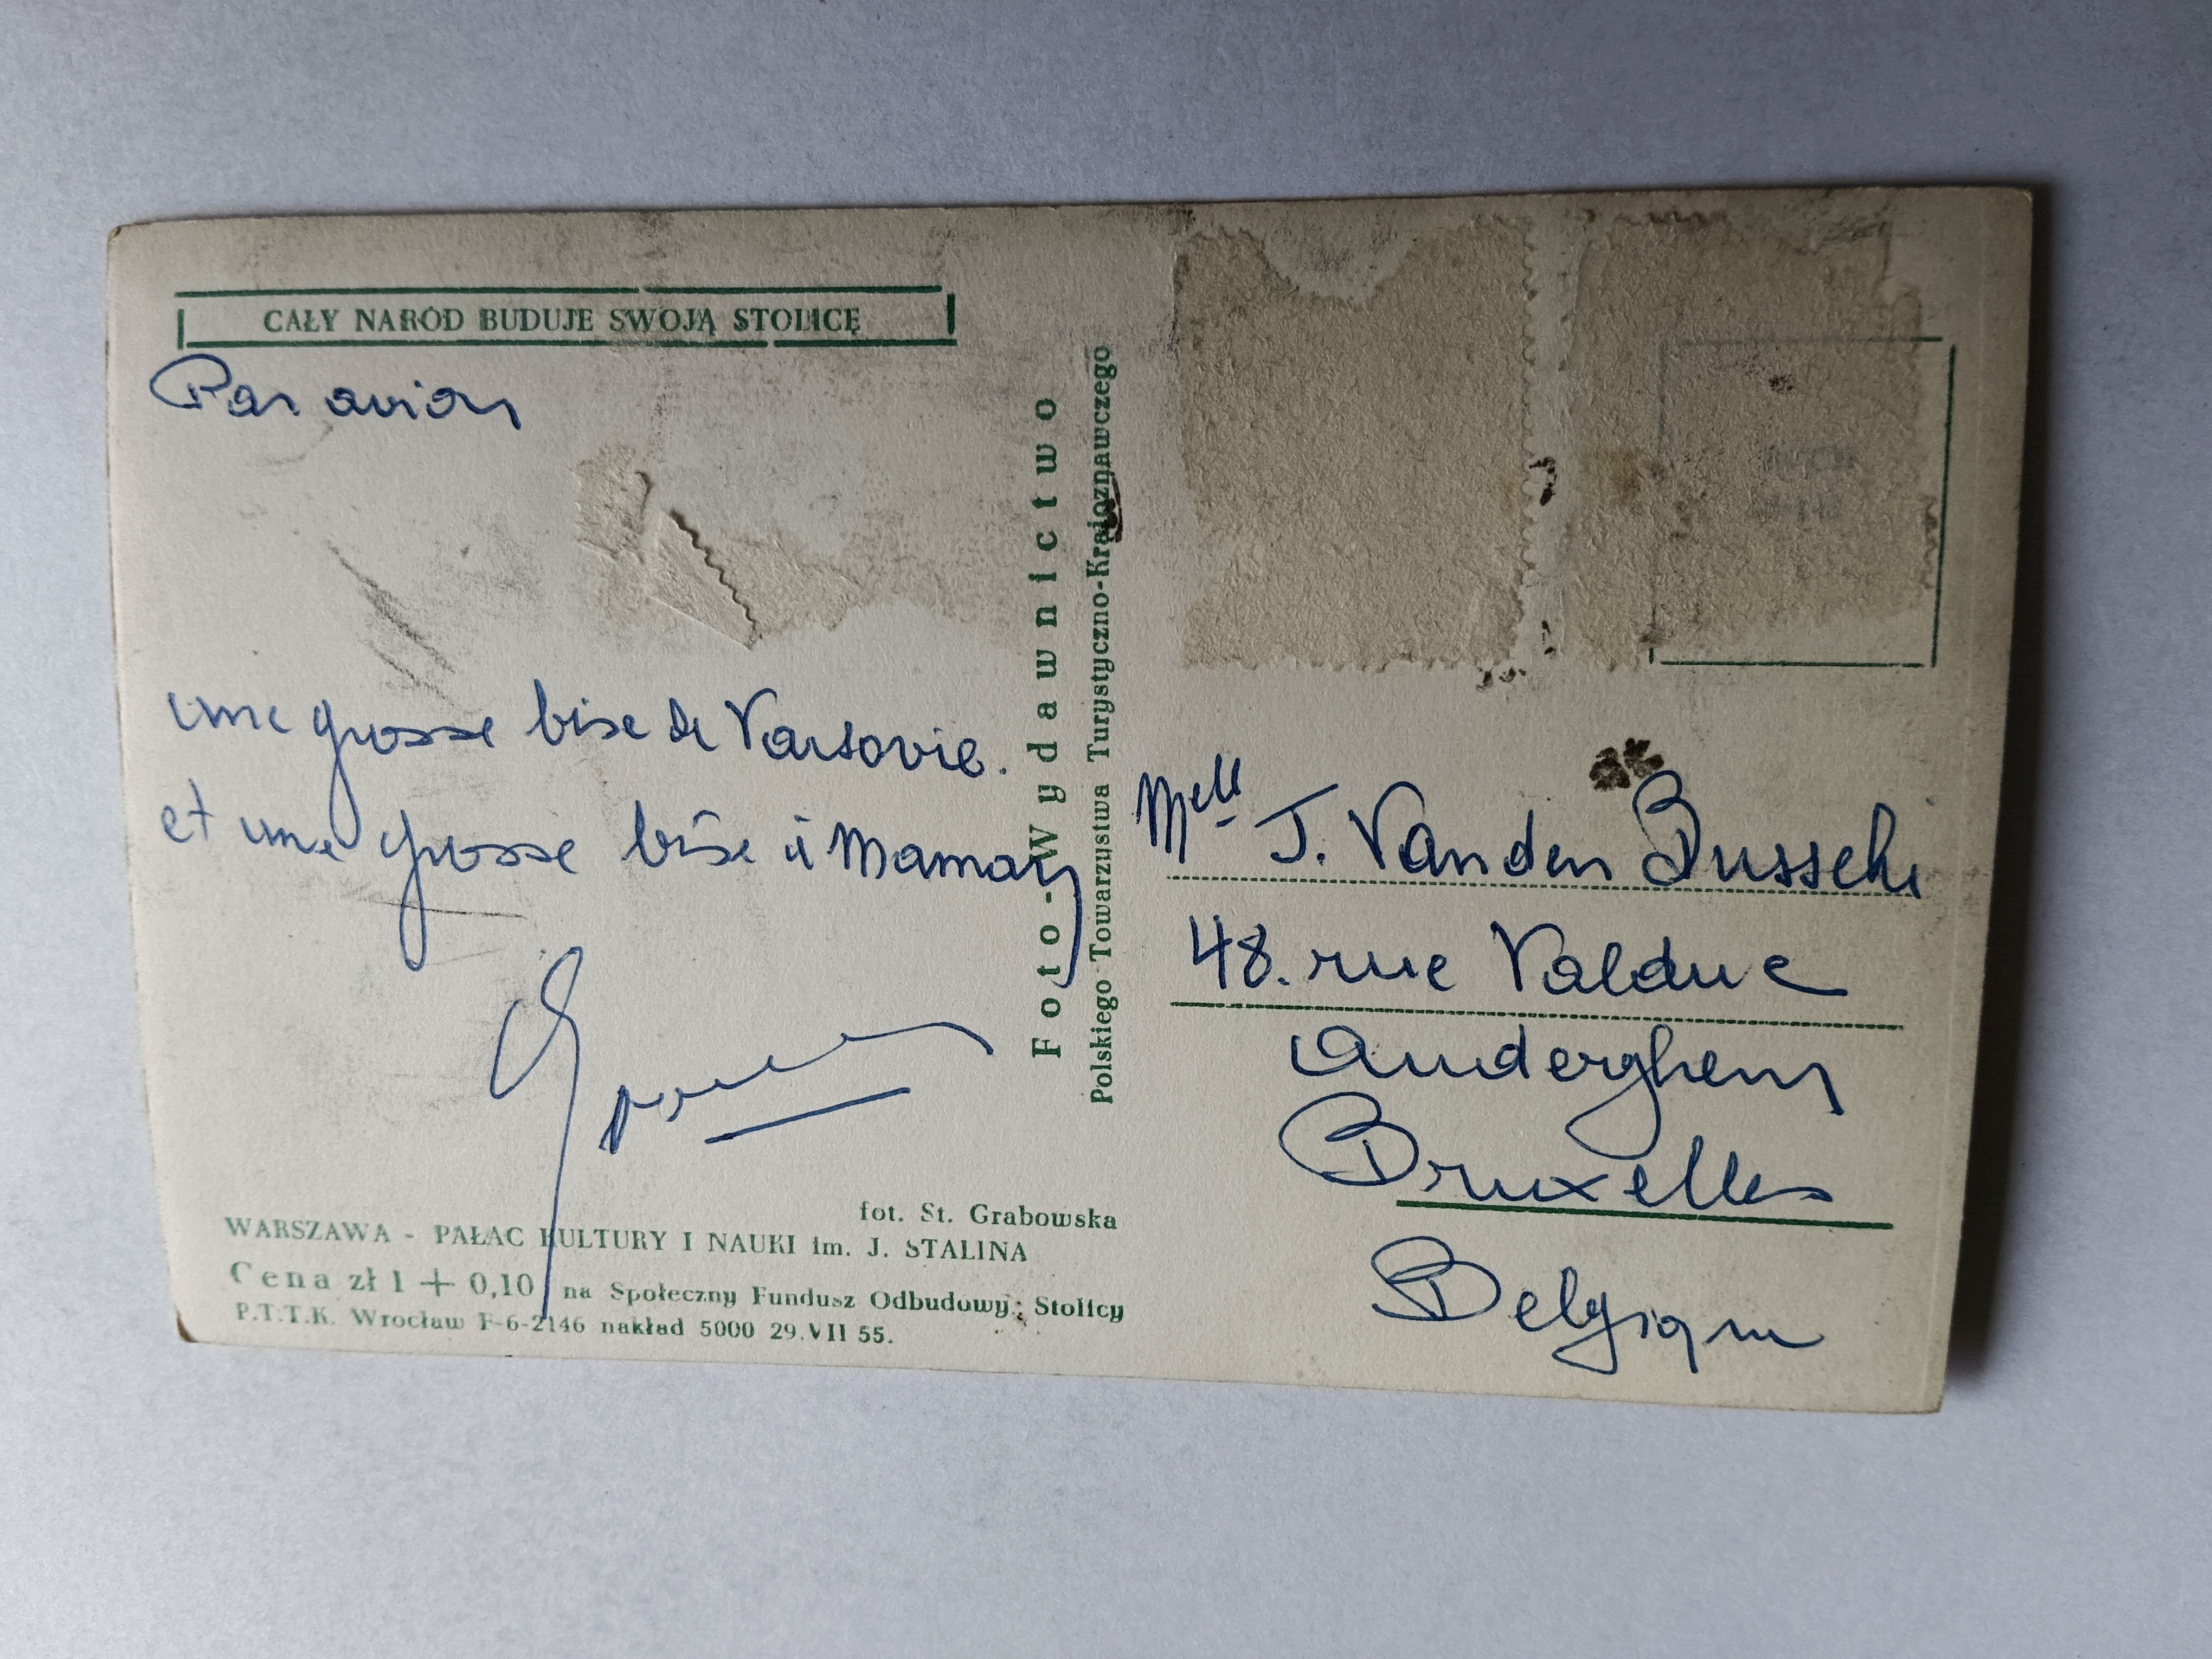 CAŁY NARÓD BUDUJE SWOJĄ STOLICĘ
Par avion
une grosse bise de Varsovie.
et une grosse bise à Maman
fot. St. Grabowska
WARSZAWA - PAŁAC KULTURY I NAUKI im. J. STALINA
Cena zł 1 + 0,10 na Społeczny Fundusz Odbudowy Stolicy
P.T.T.K. Wrocław F-6-2146 nakład 5000 29.VII 55.
Foto-Wydawnictwo
Polskiego Towarzystwa Turystyczno-Krajoznawczego
Melle J. Vanden Bussche
48. rue Valduc
Auderghem
Bruxelles
Belgique